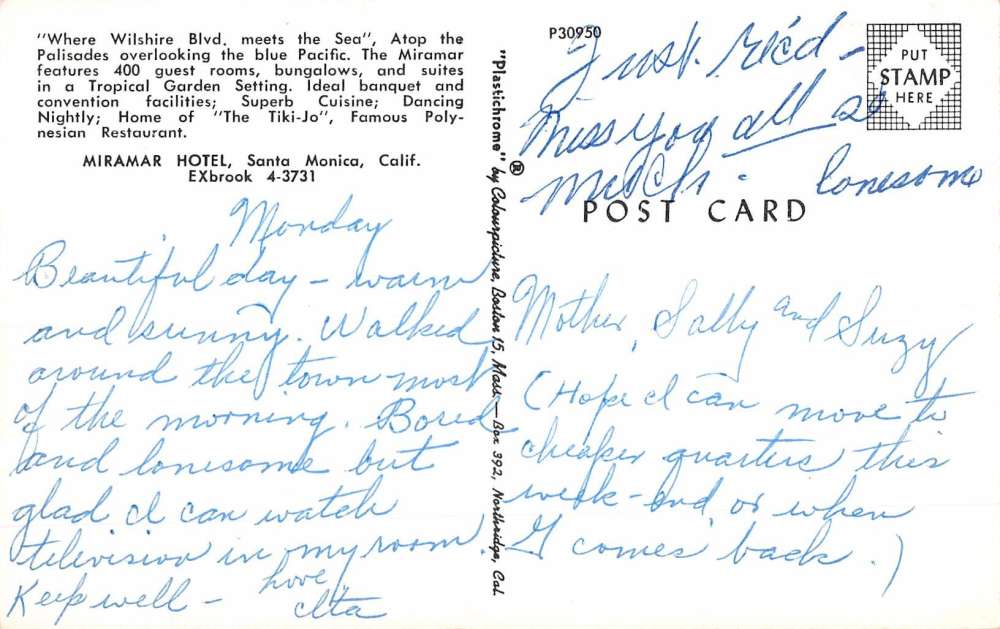 "Where Wilshire Blvd. meets the Sea", Atop the
Palisades overlooking the blue Pacific. The Miramar
features 400 guest rooms, bungalows, and suites
in a Tropical Garden Setting. Ideal banquet and
convention facilities; Superb Cuisine; Dancing
Nightly; Home of "The Tiki-Jo", Famous Poly-
nesian Restaurant.
MIRAMAR HOTEL, Santa Monica, Calif.
EXbrook 4-3731
Monday
Beautiful day – warm
and sunny. Walked
around the town most
of the morning. Bored
and lonesome but
glad I can watch
television in my room.
Keep well –
Love,
"Plastichrome" ® by Colourpicture, Boston 15, Mass. — Box 392, Northridge, Cal
P30950
Just rec'd –
Miss you all so
much. lonesome
PUT
STAMP
HERE
POST CARD
Mother, Sally and Suzy
(Hope I can move to
cheaper quarters this
week-end, or when
G comes back.)